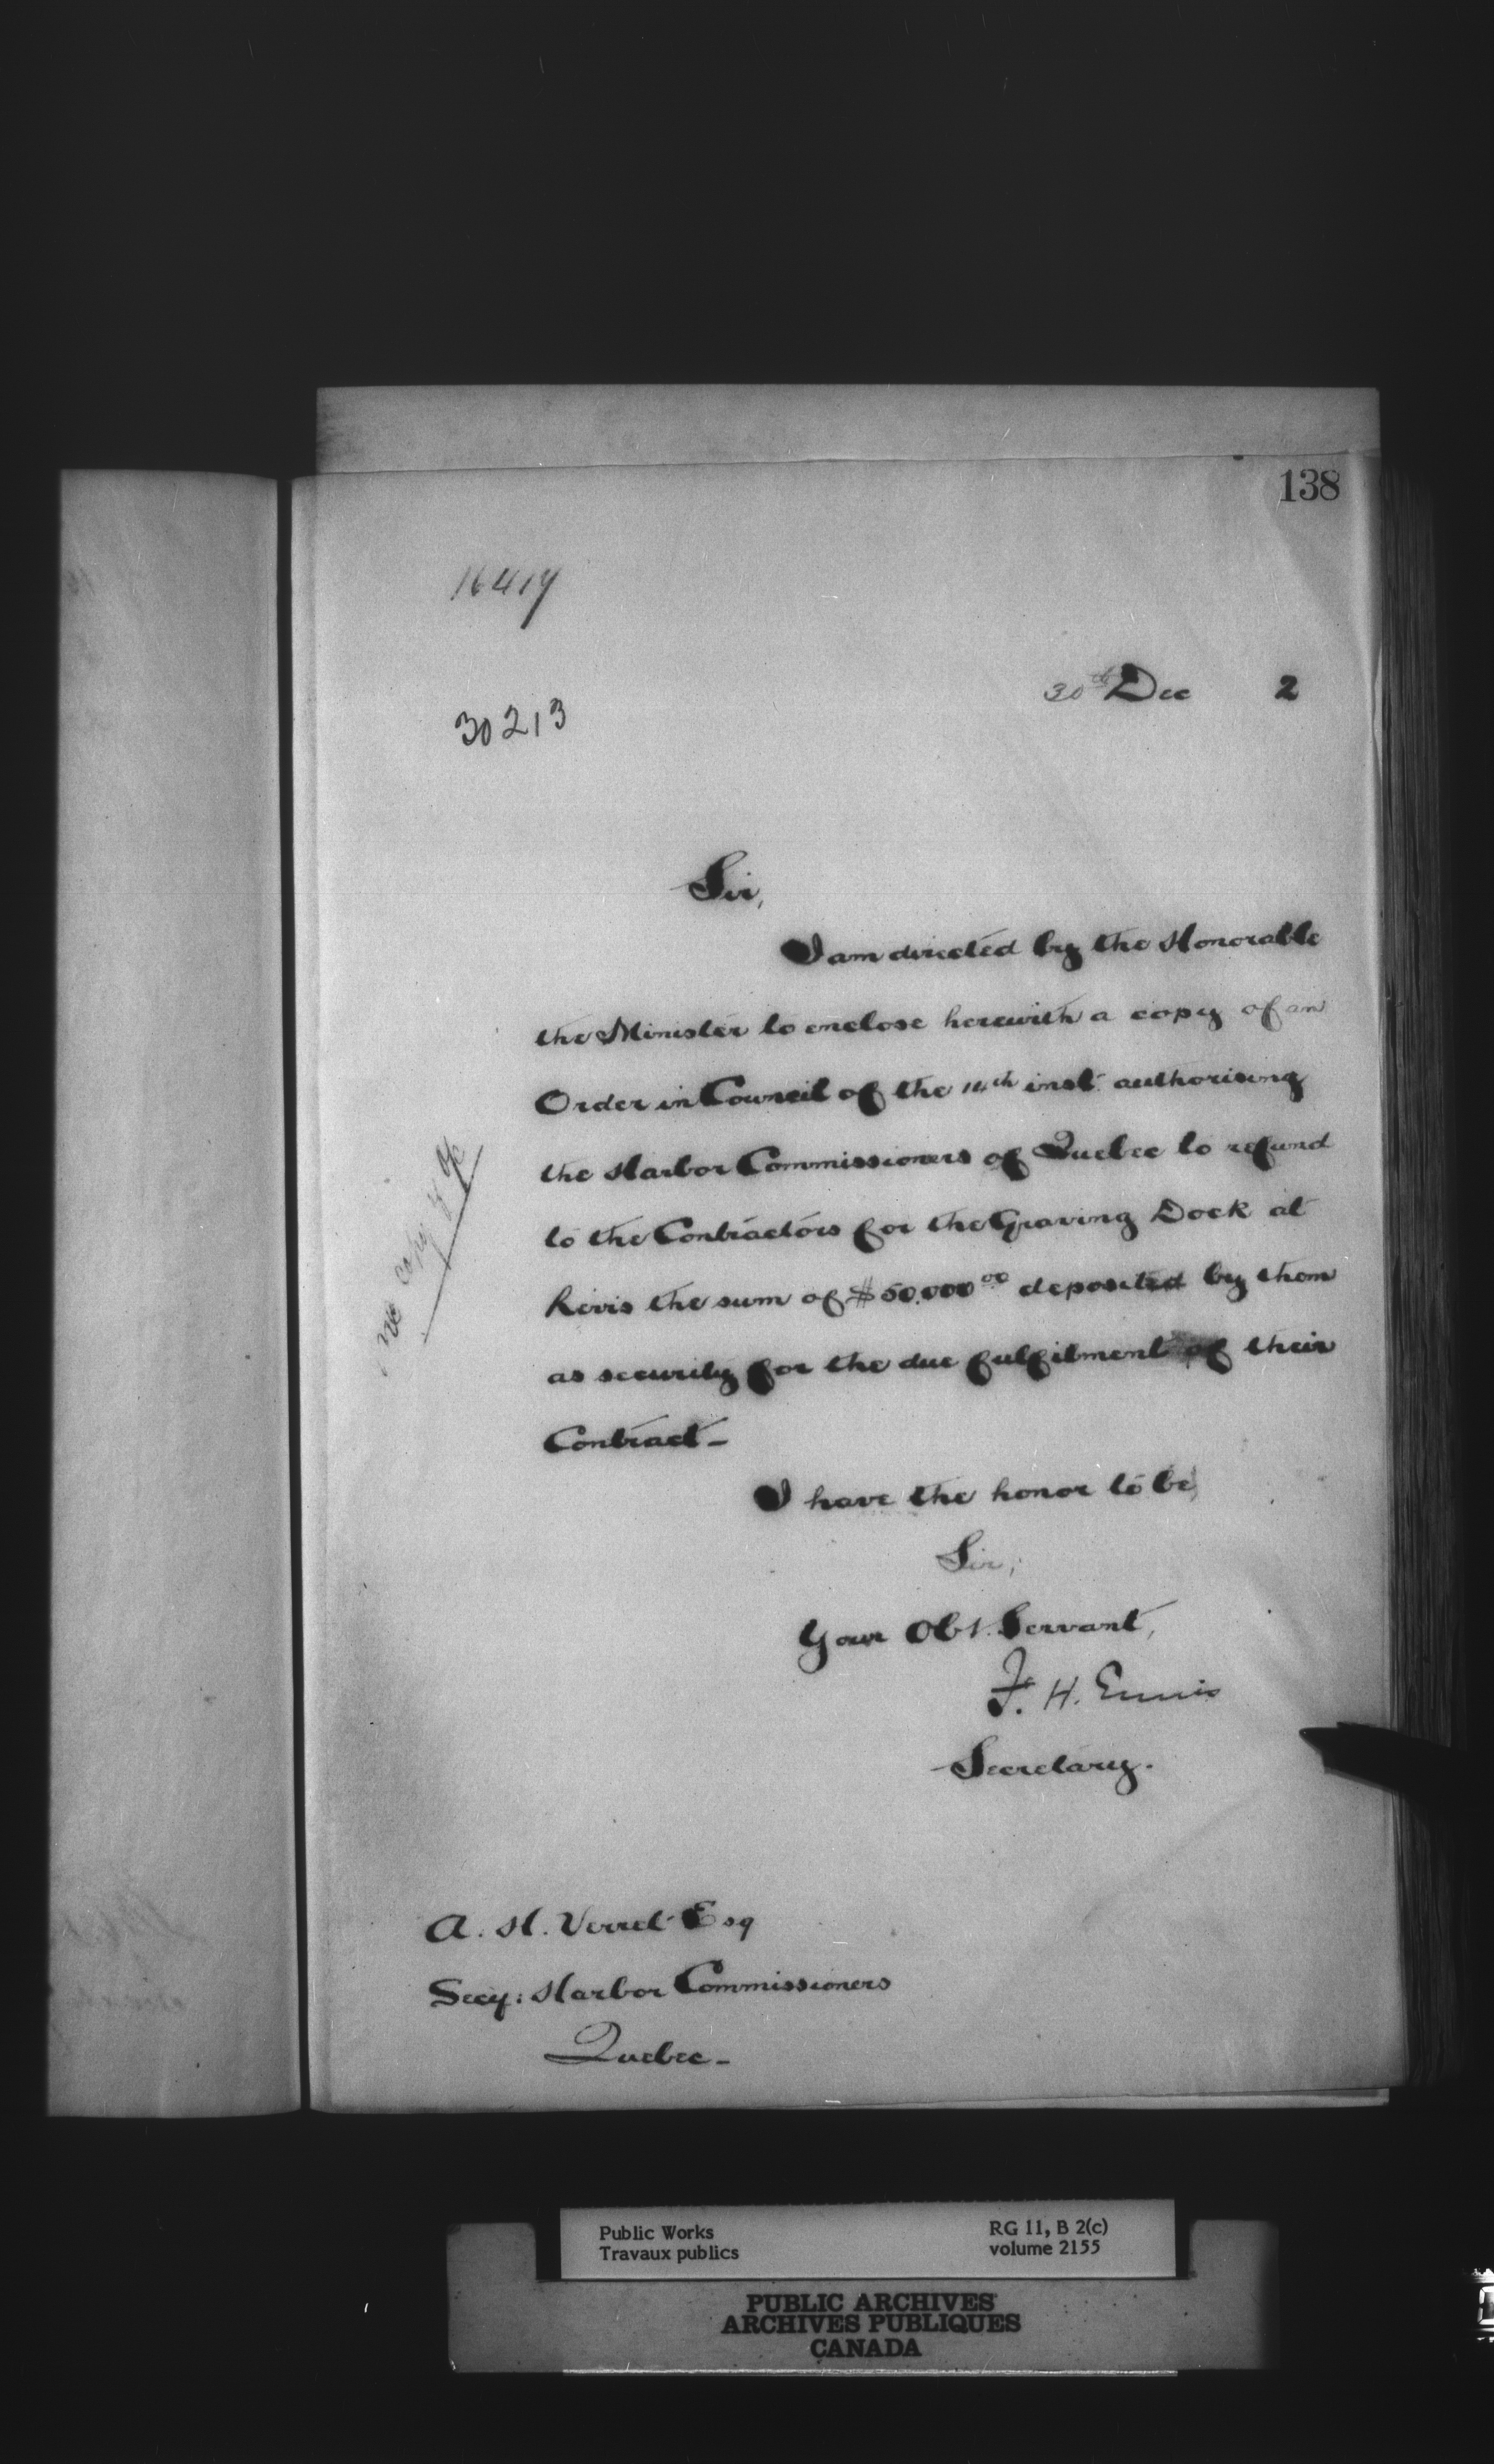 138
16419
30th Dec 2
30213
Sir,
I am directed by the Honorable
the Minister to enclose herewith a copy of an
Order in Council of the 14th inst. authorising
the Harbor Commissioners of Quebec to refund
to the Contractors for the Graving Dock at
Levis the sum of $50.000 00 deposited by them
as security for the due fulfilment of their
Contract_
I have the honor to be,
Sir,
Your Obt. Servant,
F. H. Ennis
Secretary.
A. H. Verret Esq
Secy: Harbor Commissioners
Quebec_
copy of
Public Works
Travaux publics
RG 11, B 2(c)
volume 2155
PUBLIC ARCHIVES
ARCHIVES PUBLIQUES
CANADA